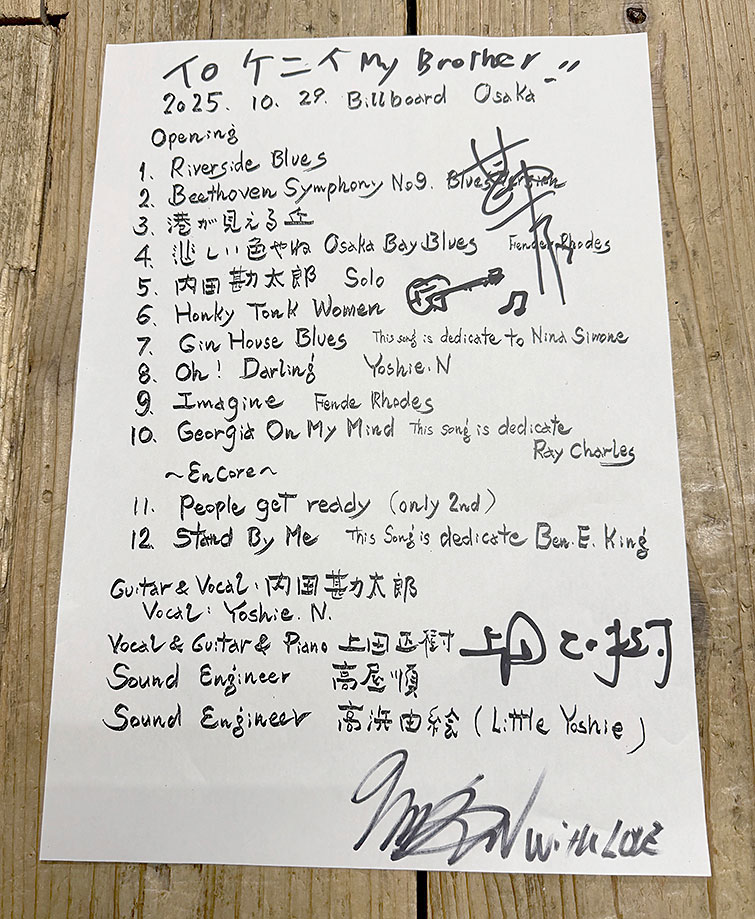 イロ ケニイ My Brother!!
2025. 10. 29. Billboard Osaka
Opening
1. Riverside Blues
2. Beethoven Symphony No9. Blues Version
3. 港が見える丘
4. 悲しい色やね Osaka Bay Blues Fender Rhodes
5. 内田勘太郎 Solo
6. Honky Tonk Women
7. Gin House Blues This song is dedicate to Nina Simone
8. Oh! Darling Yoshie.N
9. Imagine Fende Rhodes
10. Georgia On My Mind This song is dedicate
Ray Charles
~Encore~
11. People get ready (only 2nd)
12. Stand By Me This Song is dedicate Ben.E. King
Guitar & Vocal: 内田勘太郎
Vocal: Yoshie.N.
Vocal & Guitar & Piano 上田正樹
Sound Engineer 高屋順
Sound Engineer 高浜由絵 (Little Yoshie)
With LOVE